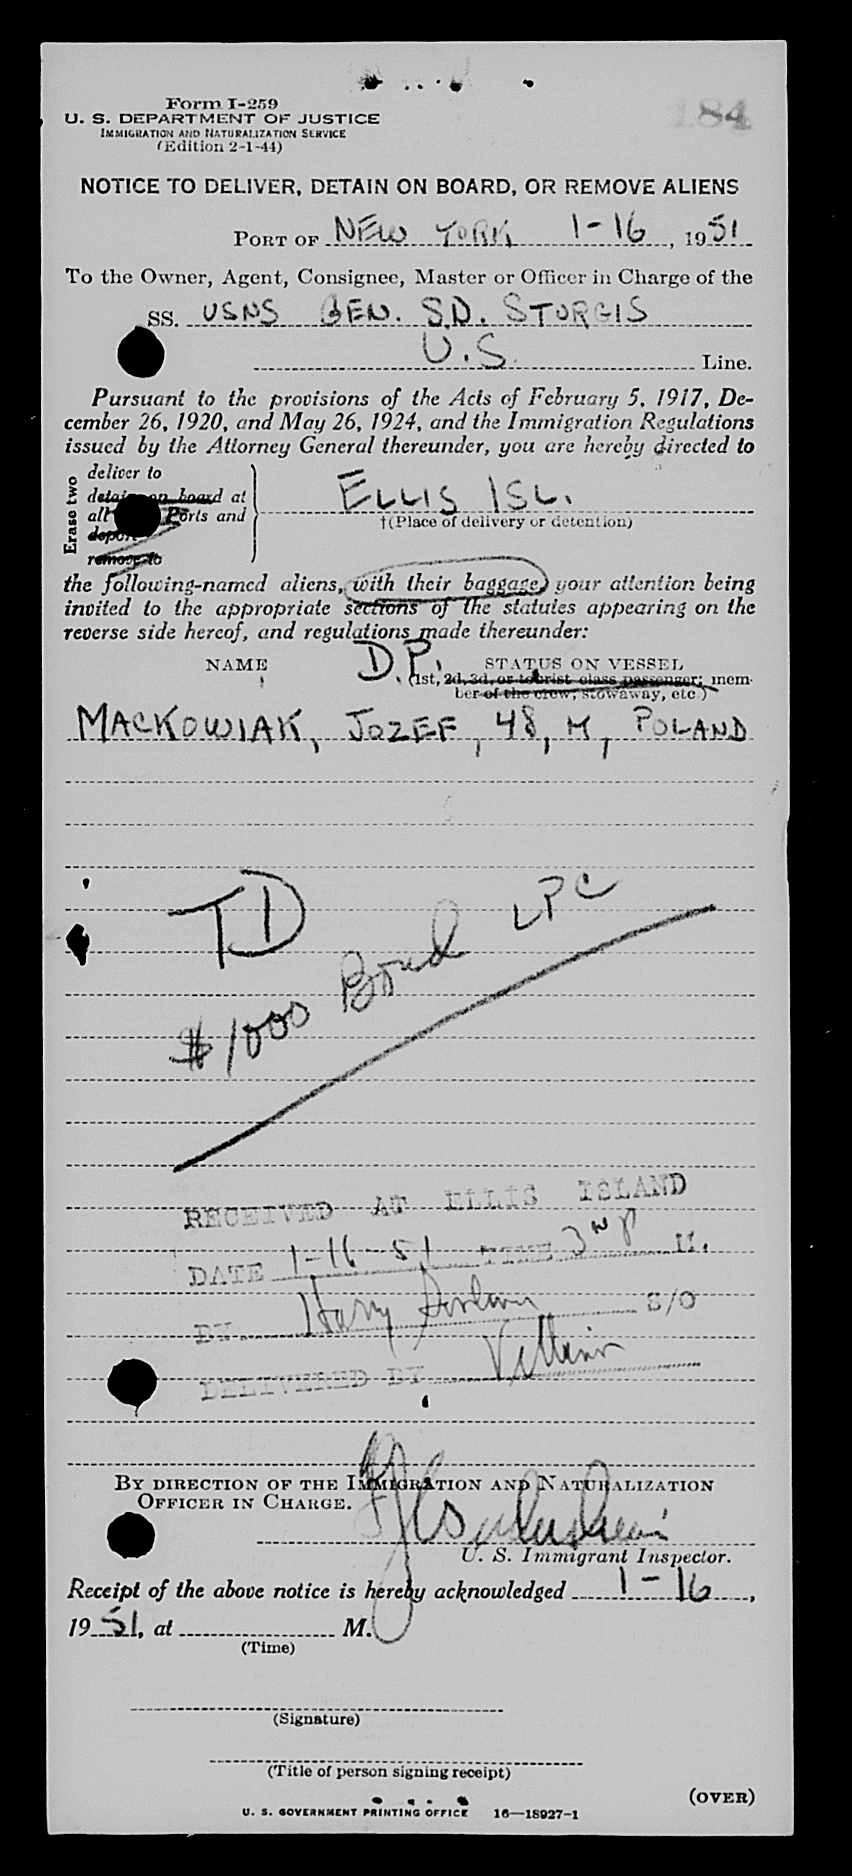 Form I-259
184
U. S. DEPARTMENT OF JUSTICE
IMMIGRATION AND NATURALIZATION SERVICE
(Edition 2-1-44)
NOTICE TO DELIVER, DETAIN ON BOARD, OR REMOVE ALIENS
PORT OF NEW YORK 1-16, 1951
To the Owner, Agent, Consignee, Master or Officer in Charge of the
SS. USNS GEN. S.D. STURGIS
U.S. Line.
Pursuant to the provisions of the Acts of February 5, 1917, De-
cember 26, 1920, and May 26, 1924, and the Immigration Regulations
issued by the Attorney General thereunder, you are hereby directed to
Erase two
deliver to
detain on board at
all Ports and
deport
remove to
ELLIS ISL.
†(Place of delivery or detention)
the following-named aliens, with their baggage, your attention being
invited to the appropriate sections of the statutes appearing on the
reverse side hereof, and regulations made thereunder:
NAME D.P. STATUS ON VESSEL
(1st, 2d, 3d, or tourist class passenger; mem-
ber of the crew, stowaway, etc.)
MACKOWIAK, JOZEF, 48, M, POLAND
TD
$1000 Bond LPC
RECEIVED AT ELLIS ISLAND
DATE 1-16-51 TIME 3 P M.
BY Harry S/O
DELIVERED BY
BY DIRECTION OF THE IMMIGRATION AND NATURALIZATION
OFFICER IN CHARGE.
U. S. Immigrant Inspector.
Receipt of the above notice is hereby acknowledged 1-16,
1951, at M.
(Time)
(Signature)
(Title of person signing receipt)
(OVER)
U. S. GOVERNMENT PRINTING OFFICE 16—18927-1